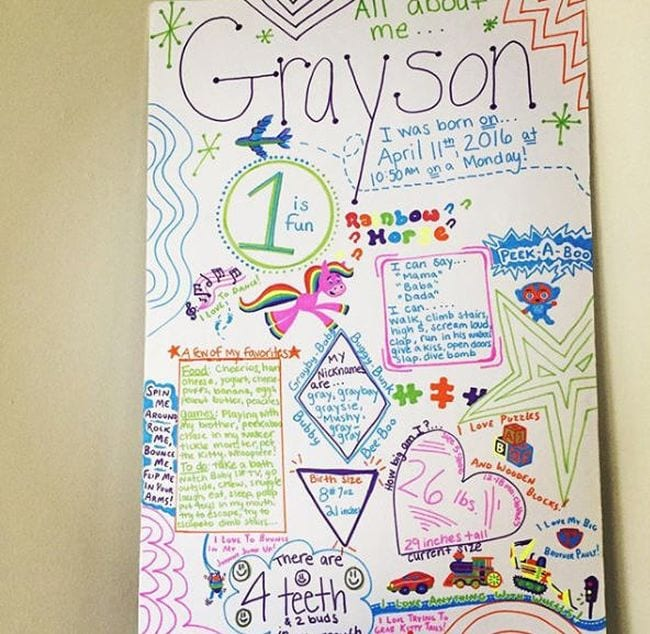 All about
me...
Grayson
I was born on...
April 11th 2016 at
10:50 AM on a Monday!
1 is
fun
Rainbow
Horse
? ? ? ?
PEEK-A-BOO
I LOVE TO DANCE!
I can say...
"Mama"
"Baba"
"Dada"
I can......
walk, climb stairs,
high 5, scream loud,
clap, run in his walker
give a kiss, open doors
slap, dive bomb
A Few of My Favorites
Food: Cheerios, ham
cheese, yogurt, cheese
puffs, banana, eggs
peanut butter, peaches
games: Playing with
my brother, peekaboo
chase in my walker
tickle monster, pet
the Kitty,
To do: take a bath
watch Baby TV, go
outside, chew, snuggle
laugh, eat, sleep, poop
put toys in my mouth,
try to escape, try to
climb stairs...
SPIN
ME
AROUND
ROCK
ME,
BOUNCE
ME,
FLIP ME
IN YOUR
ARMS!
Grayby-Baby
Buggy-Bunk
Bubby
Bee-Boo
MY
Nicknames
are...
gray, graybay
graysie,
Mushy,
gray-
gray
Birth Size
8# 7oz
21 inches
How big am I?...
26 lbs.
12-18 months
29 inches tall
current size
I LOVE PUZZLES
AND WOODEN
BLOCKS!
I LOVE MY BIG
BROTHER PAULY!
I LOVE TO BOUNCE
IN MY
JUMP UP!
There are
4 teeth
& 2 buds
in mouth
I LOVE ANYTHING WITH WHEELS
I LOVE TRYING TO
GRAB KITTY TAILS!